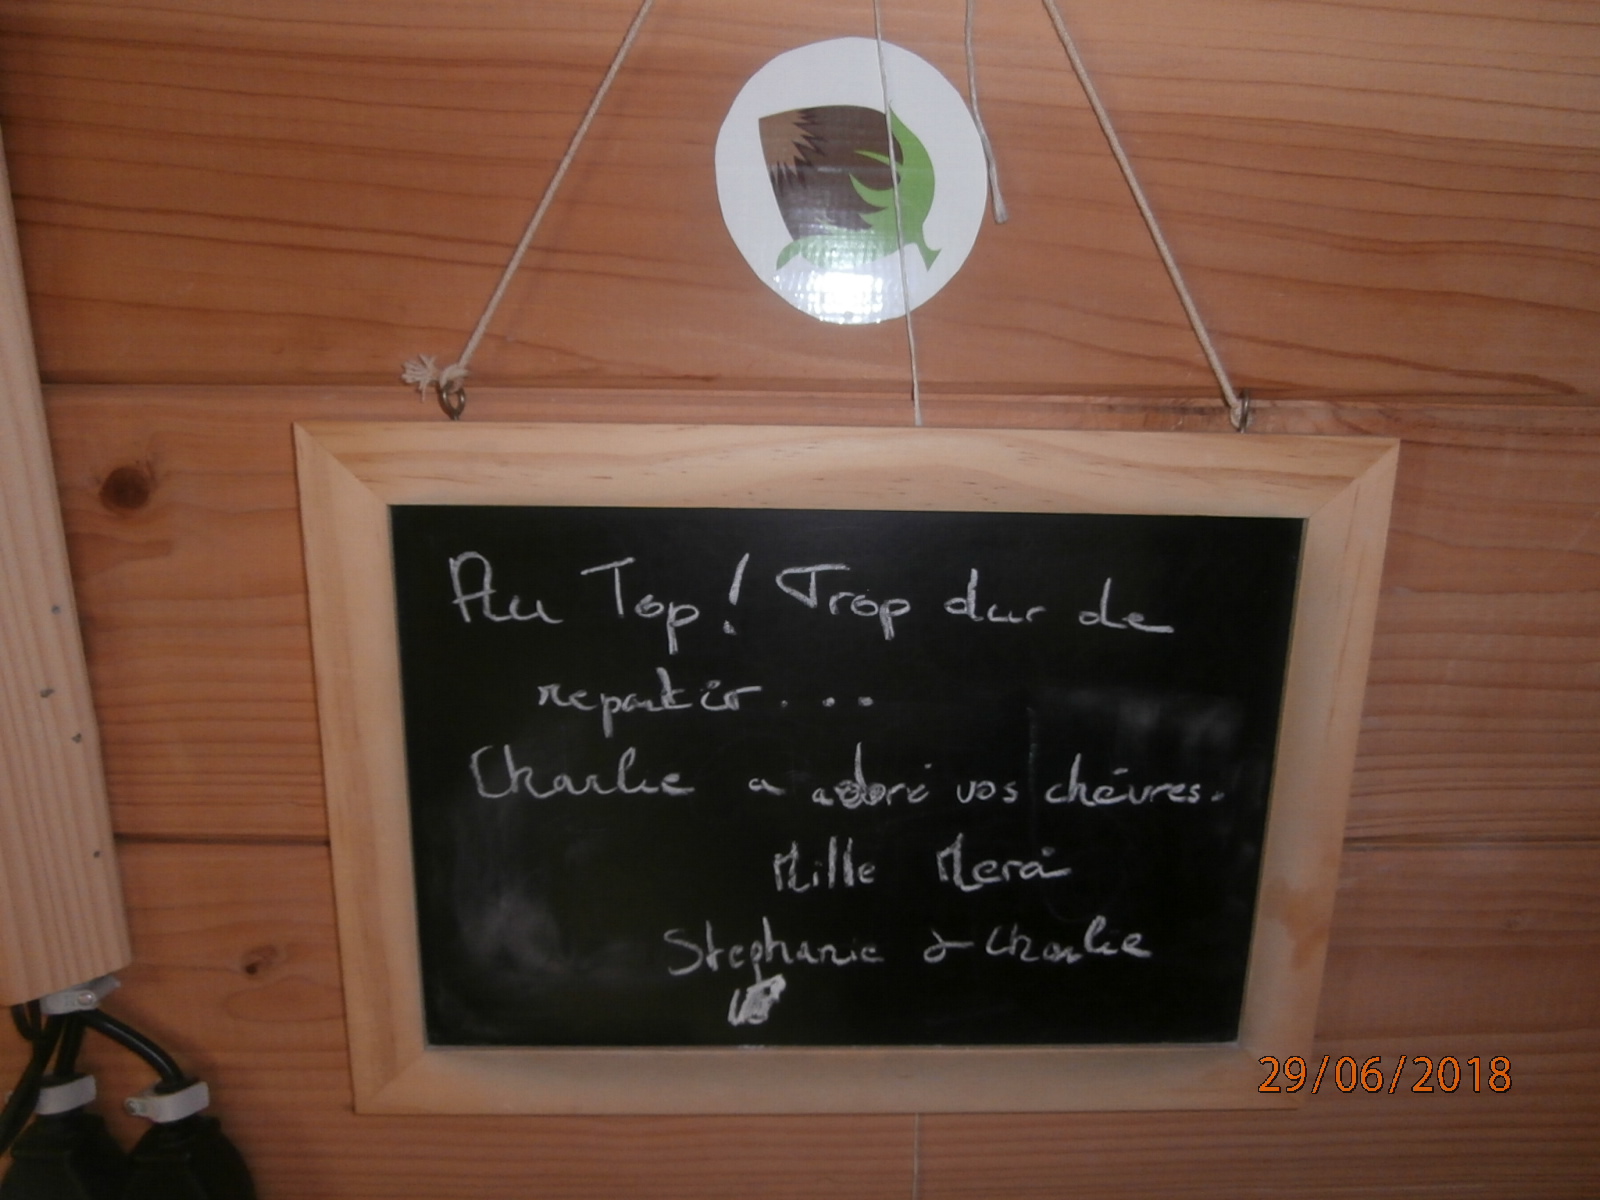 Au Top! Trop dur de
repartir...
Charlie a adoré vos chèvres.
Mille Merci
Stephanie & Charlie
29/06/2018